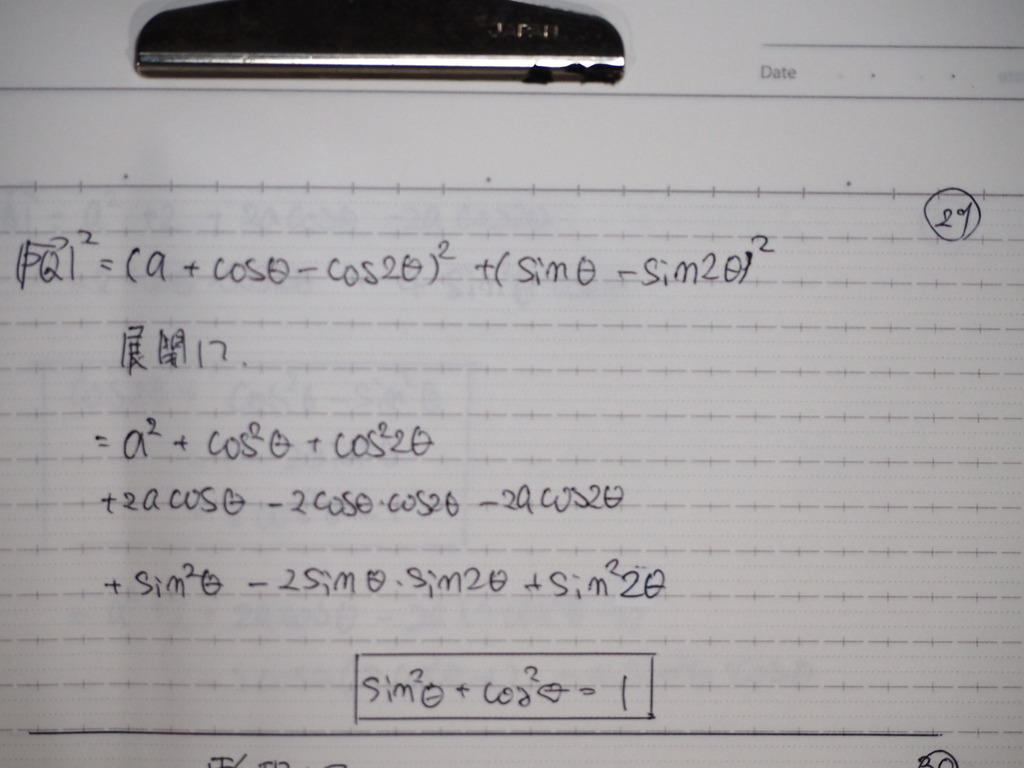 JAPAN
Date
29
|PQ|² = (a + cosθ - cos2θ)² + (sinθ - sin2θ)²
展開して.
= a² + cos²θ + cos²2θ
+ 2a cosθ - 2cosθ·cos2θ - 2a cos2θ
+ sin²θ - 2sinθ·sin2θ + sin²2θ
sin²θ + cos²θ = 1
30